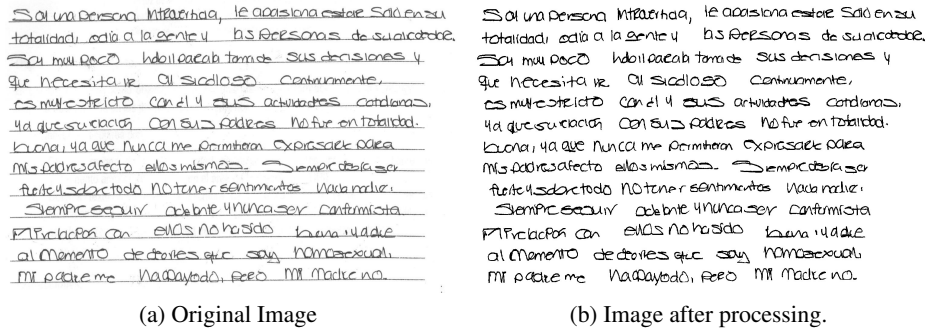 Soy una persona intravertida, le apasiona estar solo en su
totalidad, odia a la gente y las personas de su alrededor.
Soy muy poco toma de sus decisiones y
que necesita ir al sicologo continuamente,
es muy estricto con el y sus actividades cotidianas,
ya que su relacion con sus padres no fue en totalidad.
buena, ya que nunca me permitieron expresar para
mis padres afecto ellos mismos. Siempre debia ser
fuerte y sobre todo no tener sentimientos hacia nadie.
Siempre seguir adelante y nunca ser conformista
mi relacion con ellos no ha sido buena, ya que
al momento de decirles que soy homosexual,
mi padre me ha apoyado, pero mi madre no.
Soy una persona intravertida, le apasiona estar solo en su
totalidad, odia a la gente y las personas de su alrededor.
Soy muy poco toma de sus decisiones y
que necesita ir al sicologo continuamente,
es muy estricto con el y sus actividades cotidianas,
ya que su relacion con sus padres no fue en totalidad.
buena, ya que nunca me permitieron expresar para
mis padres afecto ellos mismos. Siempre debia ser
fuerte y sobre todo no tener sentimientos hacia nadie.
Siempre seguir adelante y nunca ser conformista
mi relacion con ellos no ha sido buena, ya que
al momento de decirles que soy homosexual,
mi padre me ha apoyado, pero mi madre no.
(a) Original Image
(b) Image after processing.